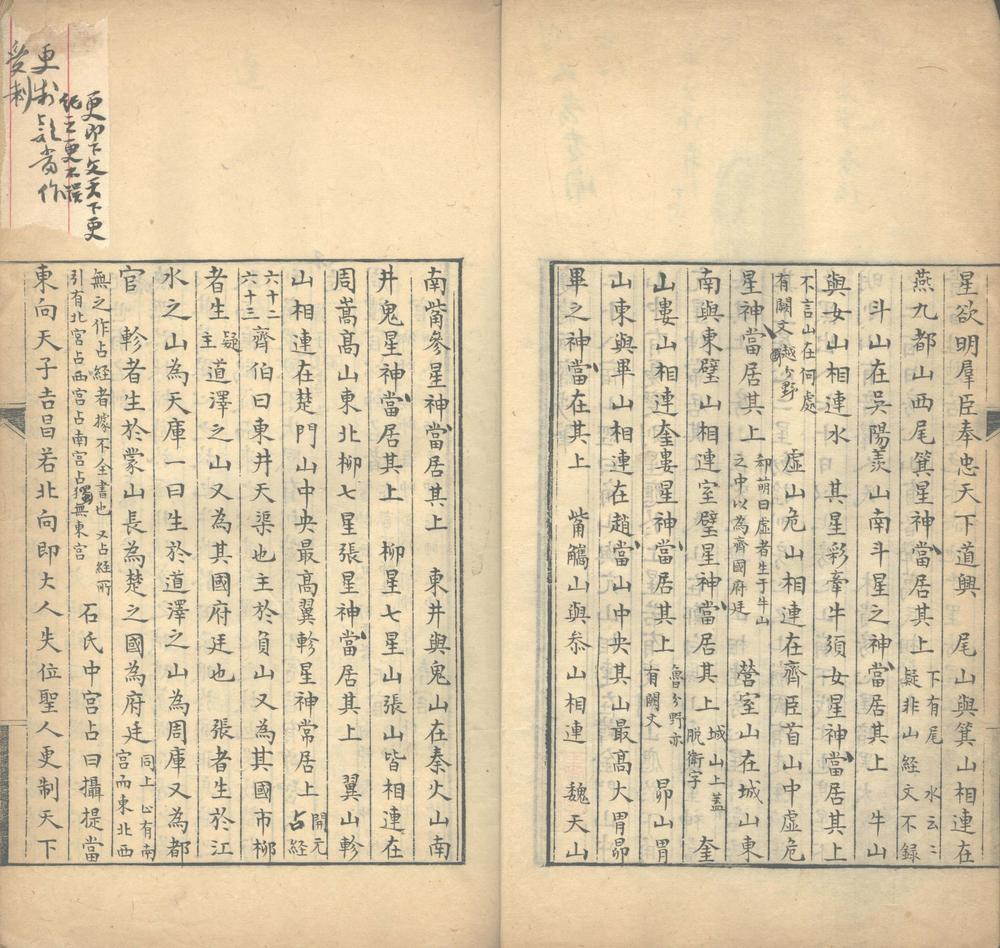 星欲明羣臣奉忠天下道興　尾山與箕山相連在
燕九都山西尾箕星神當居其上
下有尾　水云〻
疑非山經文不錄
斗山在吳陽羨山南斗星之神當居其上　牛山
與女山相連水　其星彩牽牛須女星神當居其上
不言山在何處
有闕文
越分野
虛山危山相連在齊臣首山中虛危
星神當居其上
郗萌曰虛者生于牛山
之中以為齊國府廷
營室山在城山東
南與東璧山相連室璧星神當居其上
城山上蓋
脫衛字
奎
山婁山相連奎婁星神當居其上
魯分野亦
有闕文
昴山胃
山東與畢山相連在趙當山中央其山最高大胃昴
畢之神當在其上　觜觿山與叅山相連　魏天山
南觜參星神當居其上　東井與鬼山在秦火山南
井鬼星神當居其上　柳星七星山張山皆相連在
周嵩高山東北柳七星張星神當居其上　翼山軫
山相連在楚門山中央最高翼軫星神常居上
開元
占經
六十二
六十三
齊伯曰東井天渠也主於負山又為其國市柳
者生
疑
主
道澤之山又為其國府廷也　張者生於江
水之山為天庫一曰生於道澤之山為周庫又為都
官　軫者生於蒙山長為楚之國為府廷
同上　㠯有南
宮而東北西
無之作占經者據不全書也　又占經所
引有北宮占西宮占南宮占獨無東宮
石氏中宮占曰攝提當
東向天子吉昌若北向即大人失位聖人更制天下
更即下文天下更
紀之更不誤
更制疑當作
受制